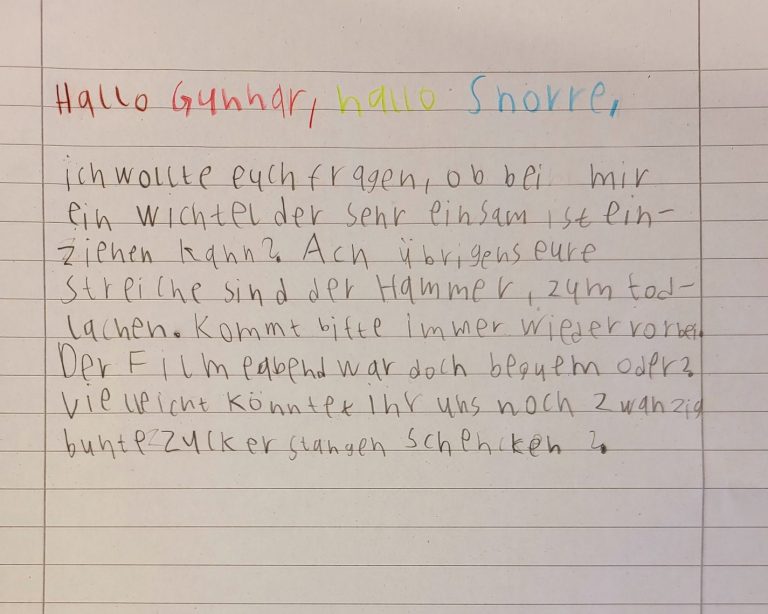 Hallo Gunnar, hallo Snorre,
ich wollte euch fragen, ob bei mir
ein wichtel der sehr einsam ist ein-
ziehen kann? Ach übrigens eure
streiche sind der Hammer, zum tod-
lachen. Kommt bitte immer wieder vorbei.
Der Filmeabend war doch bequem oder?
vielleicht könntet ihr uns noch zwanzig
bunte zuckerstangen schencken?